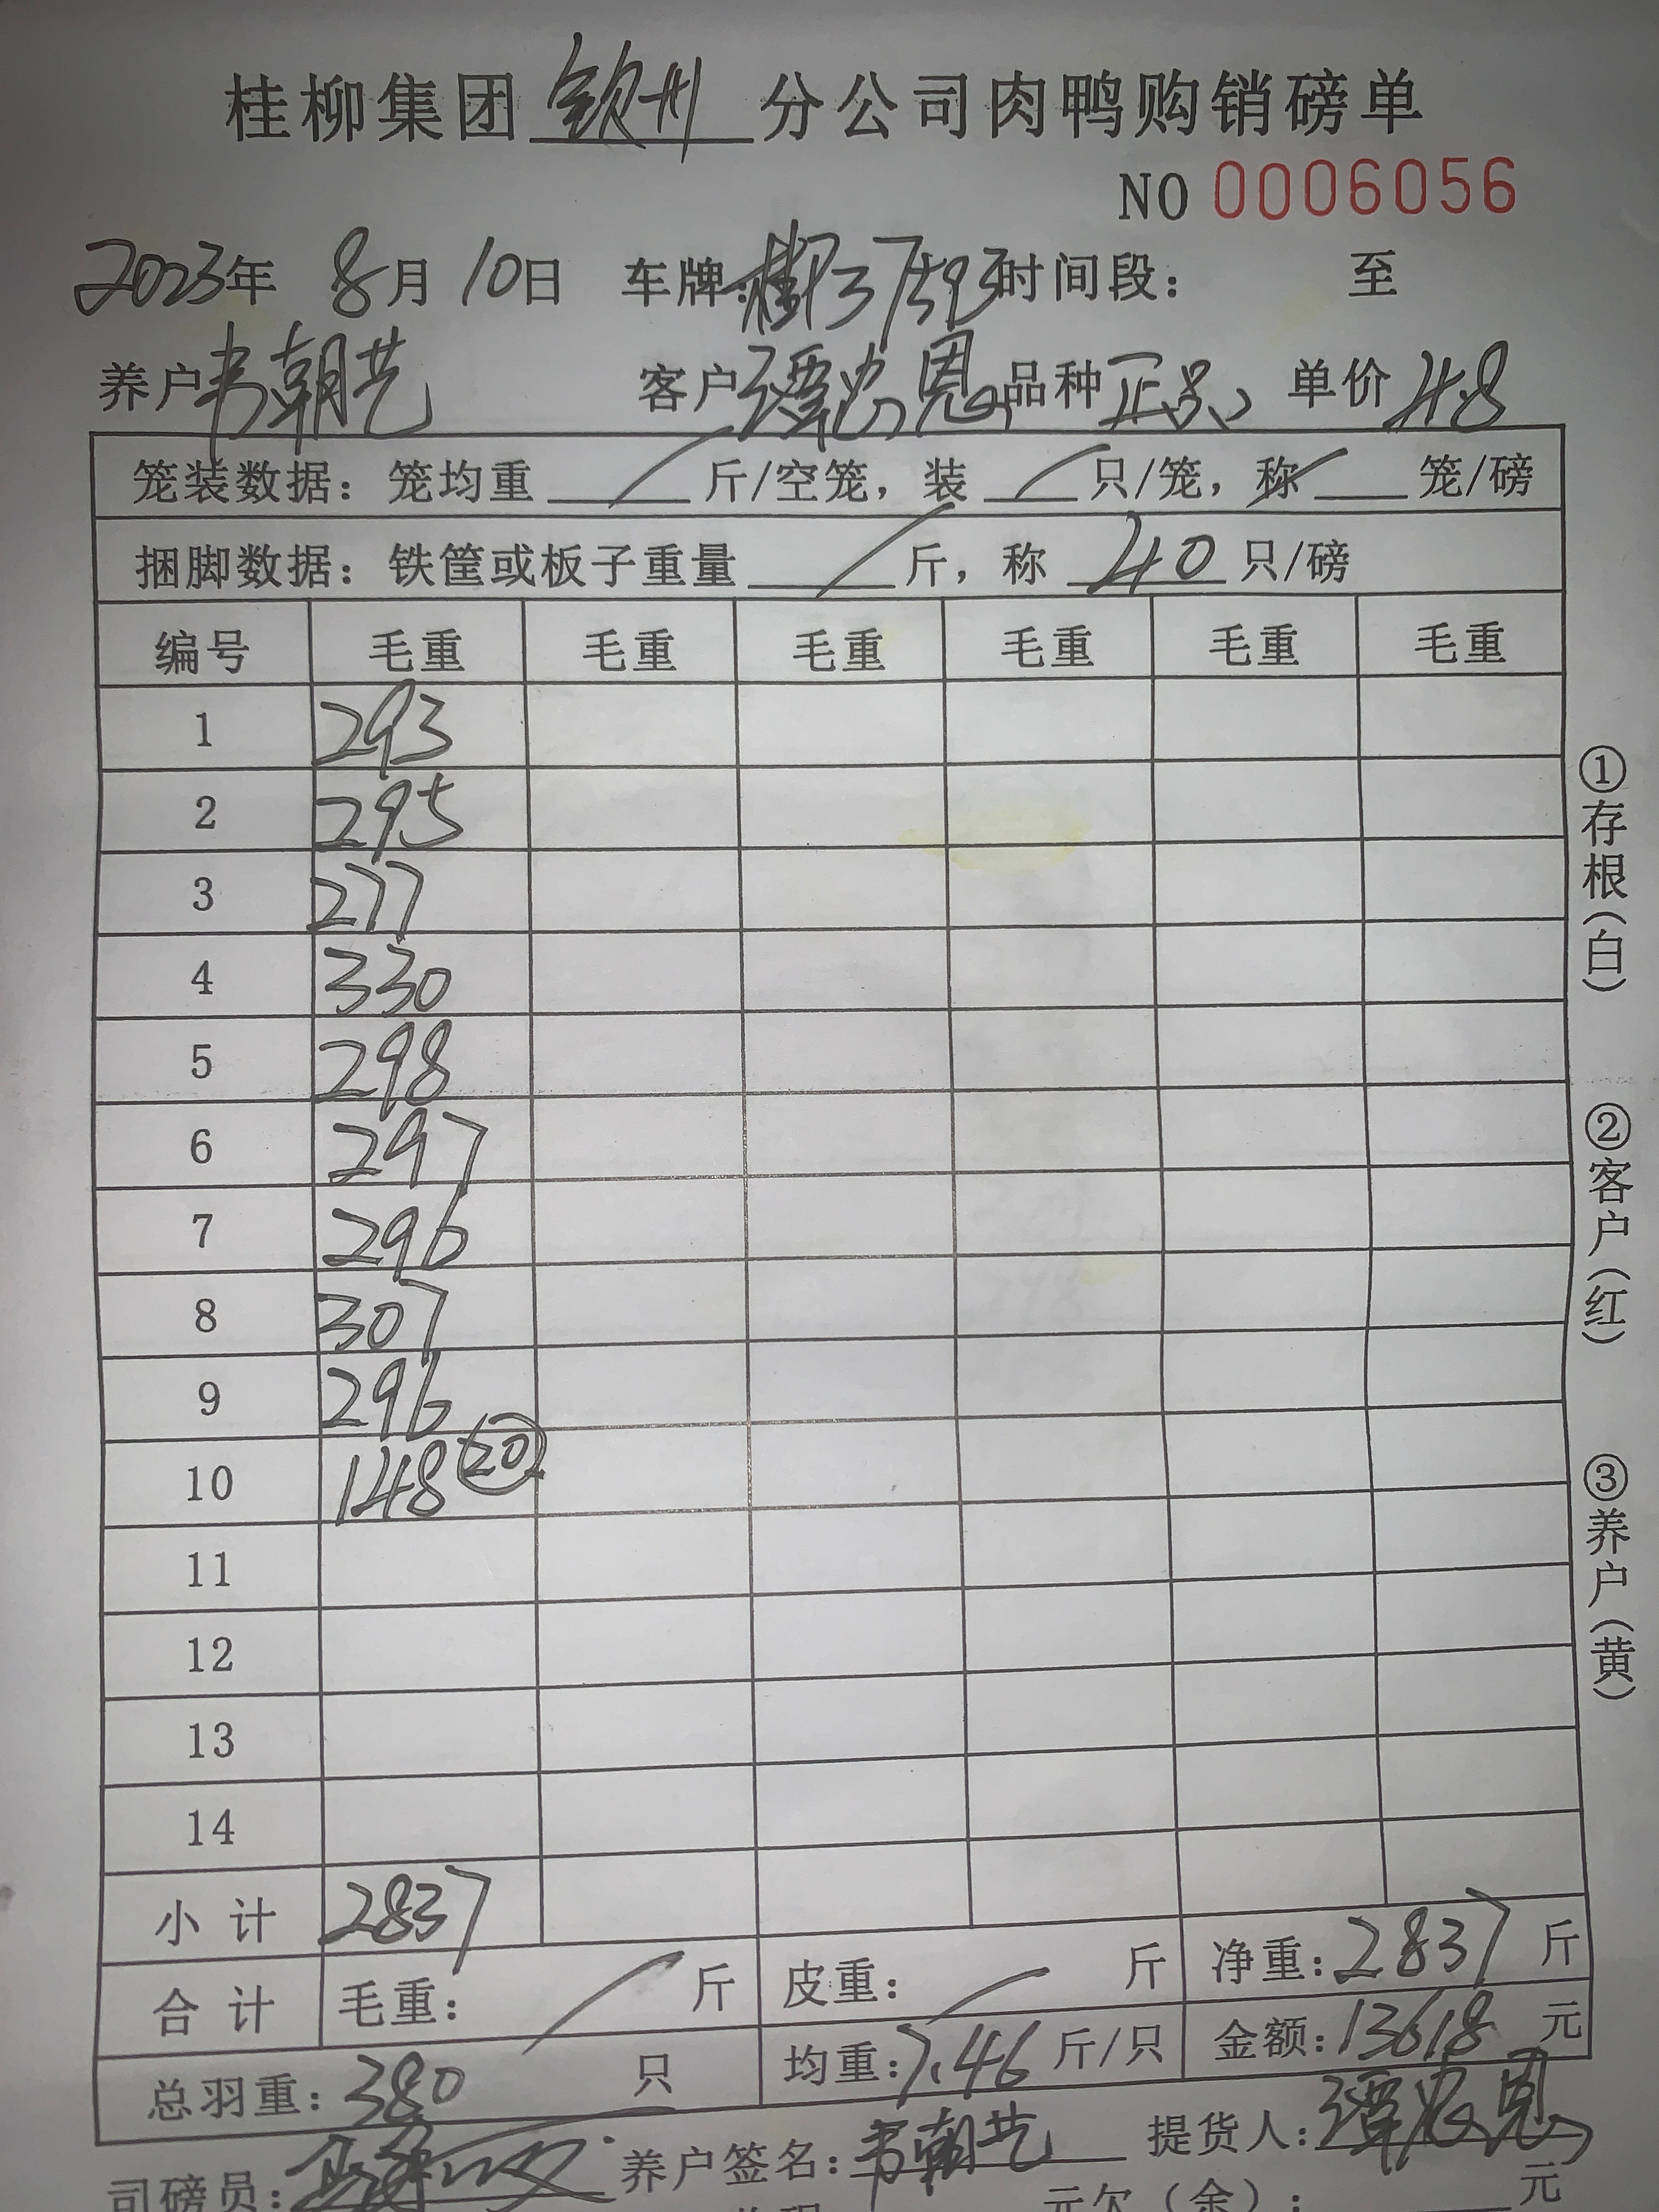 桂柳集团 钦州 分公司肉鸭购销磅单
NO 0006056
2023年 8月 10日 车牌: 桂P37593 时间段: 至
养户 韦朝艺 客户 谭忠恩 品种 正品 单价 4.8
笼装数据: 笼均重 / 斤/空笼, 装 / 只/笼, 称 / 笼/磅
捆脚数据: 铁筐或板子重量 / 斤, 称 40 只/磅
编号 毛重 毛重 毛重 毛重 毛重 毛重
1 293
2 295
3 277
4 330
5 298
6 297
7 296
8 307
9 296
10 148 20
11
12
13
14
小计 2837
合计 毛重: / 斤 皮重: / 斤 净重: 2837 斤
总羽重: 380 只 均重: 7.46 斤/只 金额: 13618 元
司磅员: 养户签名: 韦朝艺 提货人: 谭忠恩
元欠(余): 元
①存根(白)
②客户(红)
③养户(黄)